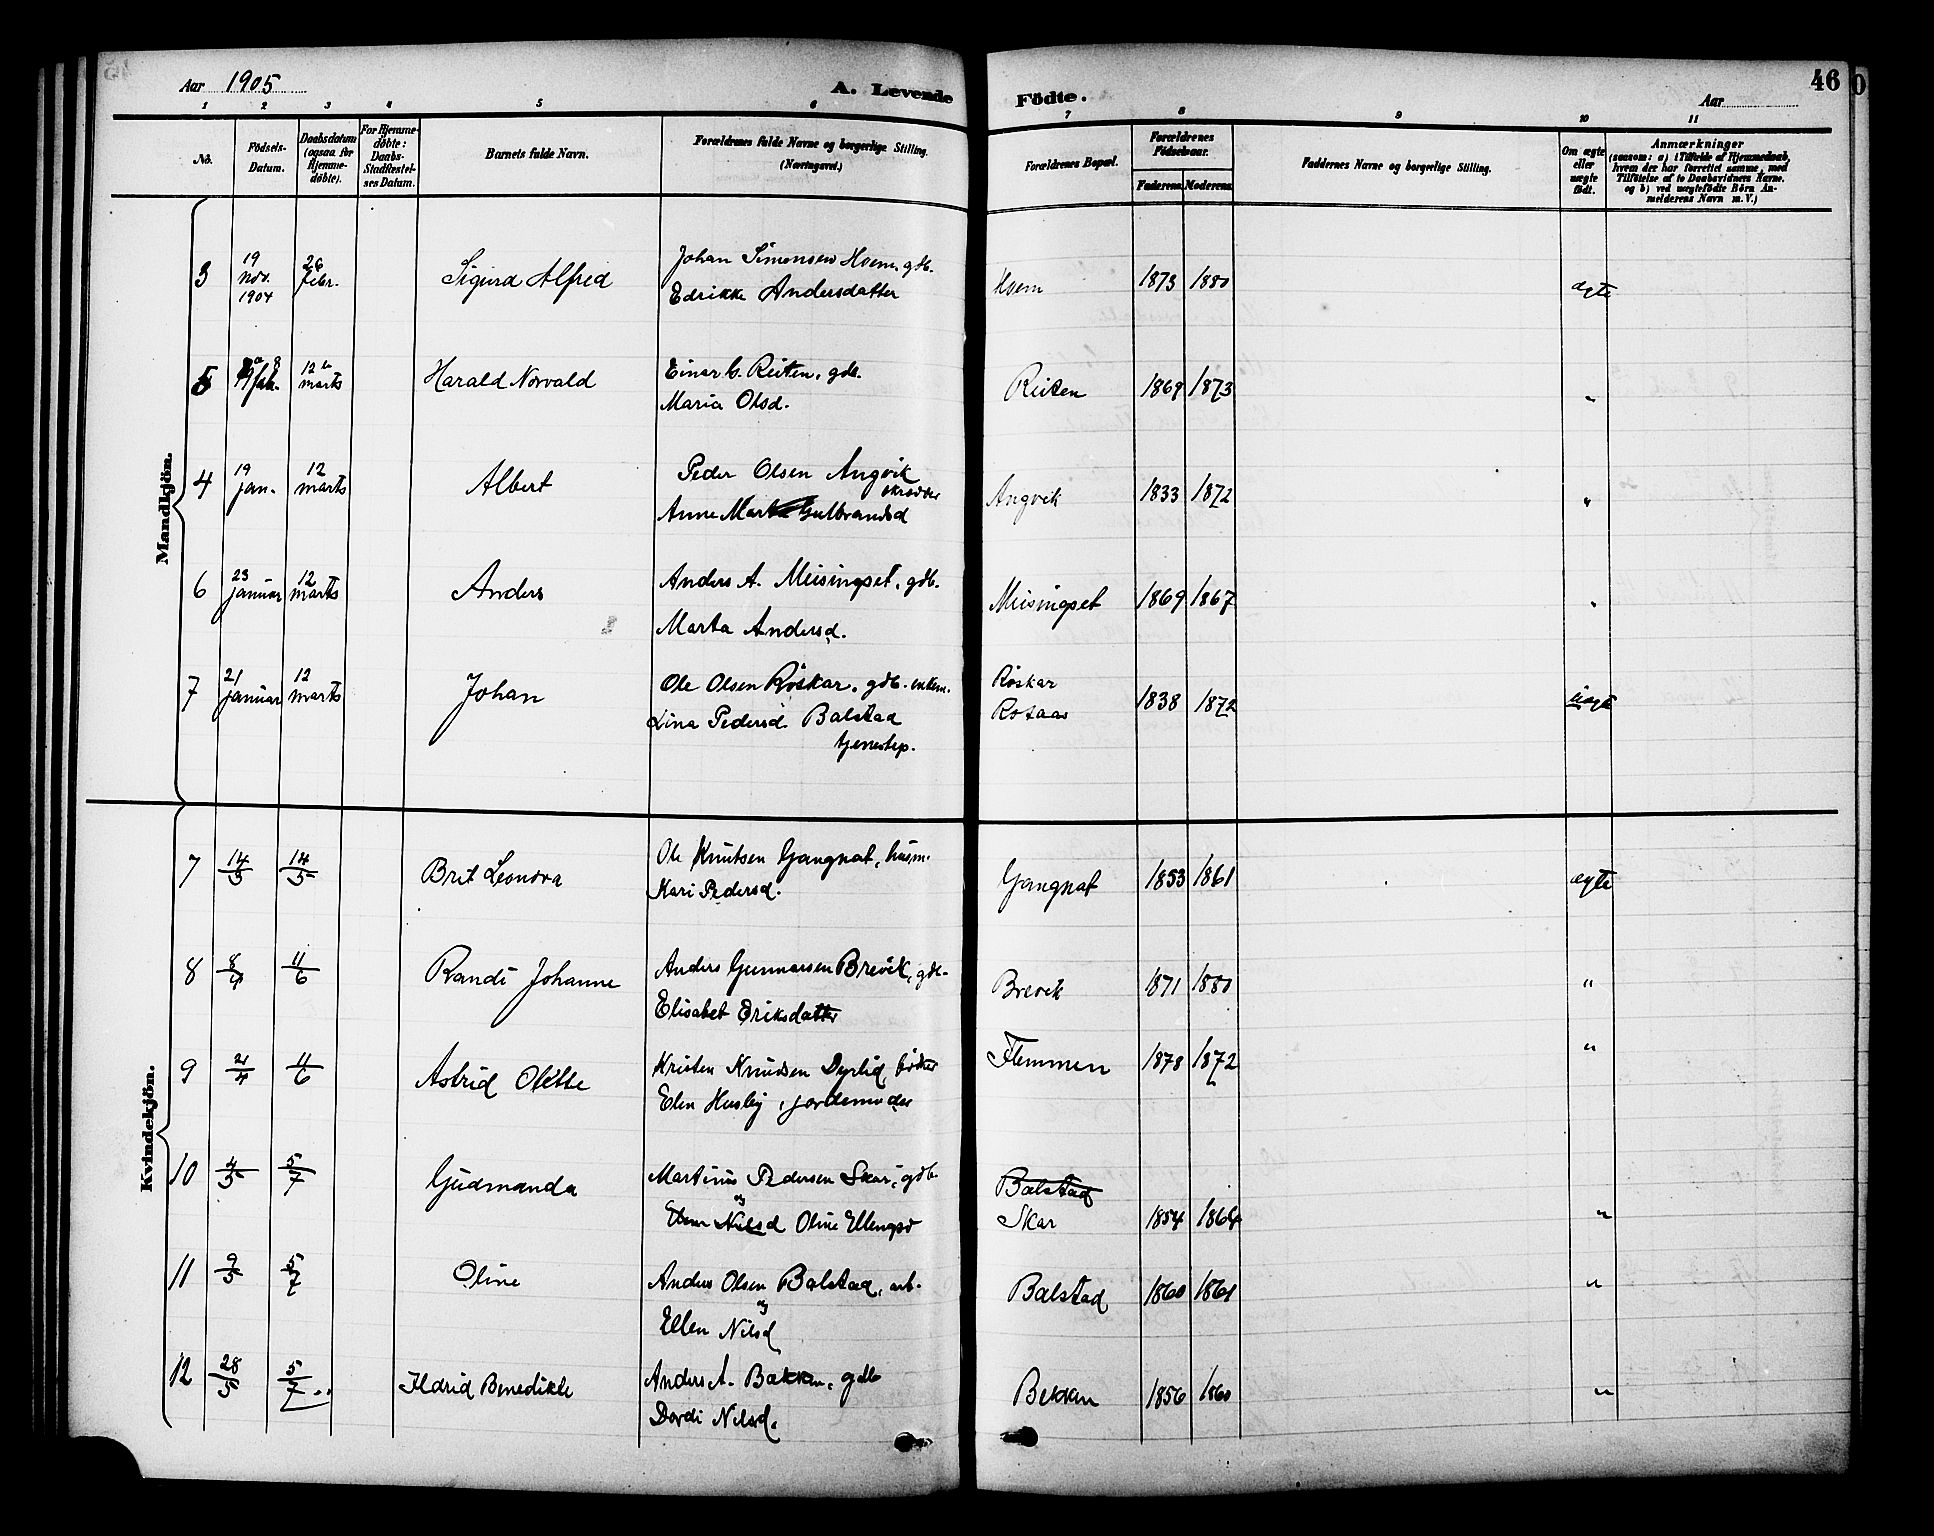 Aar 1905
A. Levende Födte.
Aar
46
1 2 3 4 5 6 7 8 9 10 11
No.
Födsels-Datum.
Daabsdatum (ogsaa for Hjemme-döbte).
For Hjemme-döbte: Daabs-Stadfæstel-ses Datum.
Barnets fulde Navn.
Forældrenes fulde Navne og borgerlige Stilling. (Næringsvei.)
Forældrenes Bopæl.
Forældrenes Födselsaar.
Faderens. Moderens.
Faddernes Navne og borgerlige Stilling.
Om ægte eller uægte födt.
Anmærkninger
(saasom: a) i Tilfælde af Hjemmedaab, hvem der har forrettet samme, med Tilföielse af to Daabsvidners Navne, og b) ved uægtefödte Börn An-melderens Navn m. V.)
Mandkjön.
3 19 Nov. 1904 26 Febr. Sigurd Alfred Johan Simonsen Hoem, gdb. Hoem 1873 1880 ægte
Edrikke Andersdatter
5 12 marts Harald Norvald Einar C. Reiten, gdb. Reiten 1869 1873 "
Maria Olsd.
4 19 jan. 12 marts Albert Peder Olsen Angvik skrædder Angvik 1833 1872 "
Anne Marta Gulbrandsd
6 23 januar 12 marts Anders Anders A. Meisingset, gdb. Meisingset 1869 1867 "
Marta Andersd.
7 21 januar 12 marts Johan Ole Olsen Röskar, gdb. enkem. Röskar 1838 1872 uægte
Lina Pedersd. Balstad Rotaas
tjenestep.
Kvindekjön.
7 14/3 14/5 Brit Leonora Ole Knutsen Gangnat, husm. Gangnat 1853 1861 ægte
Kari Pedersd.
8 8/4 11/6 Randi Johanne Anders Gunnarsen Brevik, gdb. Brevik 1871 1880 "
Elisabet Eriksdatter
9 21/4 11/6 Astrid Olette Kristen Knudsen Dyrlid, bødker Flemmen 1878 1872 "
Elen Husby, jordemoder
10 4/5 5/7 Gudmanda Martinus Pedersen Skar, gdb Balstad
Nilsd Oline Ellengsd Skar 1854 1864 "
11 9/5 5/7 Oline Anders Olsen Balstad, arb. Balstad 1860 1861 "
og
Ellen Nilsd
12 28/5 5/7 Ildrid Benedikte Anders A. Bakken, gdb Bekken 1856 1860 "
Dordi Nilsd.